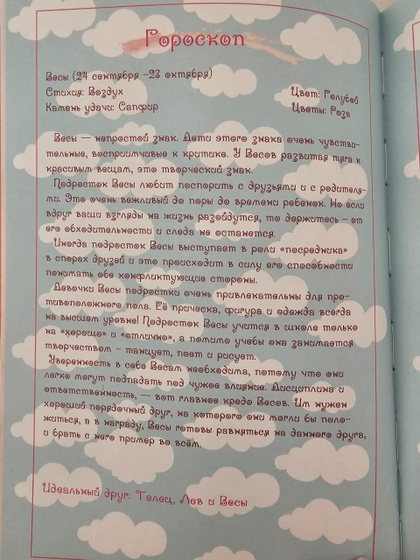 Гороскоп
Весы (24 сентября -23 октября)
Стихия: Воздух
Цвет: Голубой
Камень удачи: Сапфир
Цветы: Роза
Весы — непростой знак. Дети этого знака очень чувстви-
тельные, восприимчивые к критике. У Весов развитая тяга к
красивым вещам, это творческий знак.
Подросток Весы любит поспорить с друзьями и с родителя-
ми. Это очень вежливый до поры до времени ребенок. Но если
вдруг ваши взгляды на жизнь разойдутся, то держитесь - от
его обходительности и следа не останется.
Иногда подросток Весы выступает в роли «посредника»
в спорах друзей и это происходит в силу его способности
понимать обе конфликтующие стороны.
Девочки Весы подростки очень привлекательны для про-
тивоположного пола. Её прическа, фигура и одежда всегда
на высшем уровне! Подросток Весы учится в школе только
на «хорошо» и «отлично», а помимо учебы она занимается
творчеством - танцует, поет и рисует.
Уверенность в себе Весам необходима, потому что они
легко могут подпадать под чужое влияние. Дисциплина и
ответственность, — вот главное кредо Весов. Им нужен
хороший порядочный друг, на которого они могли бы поло-
житься, а в награду, Весы готовы равняться на данного друга,
и брать с него пример во всём.
Идеальный друг: Телец, Лев и Весы